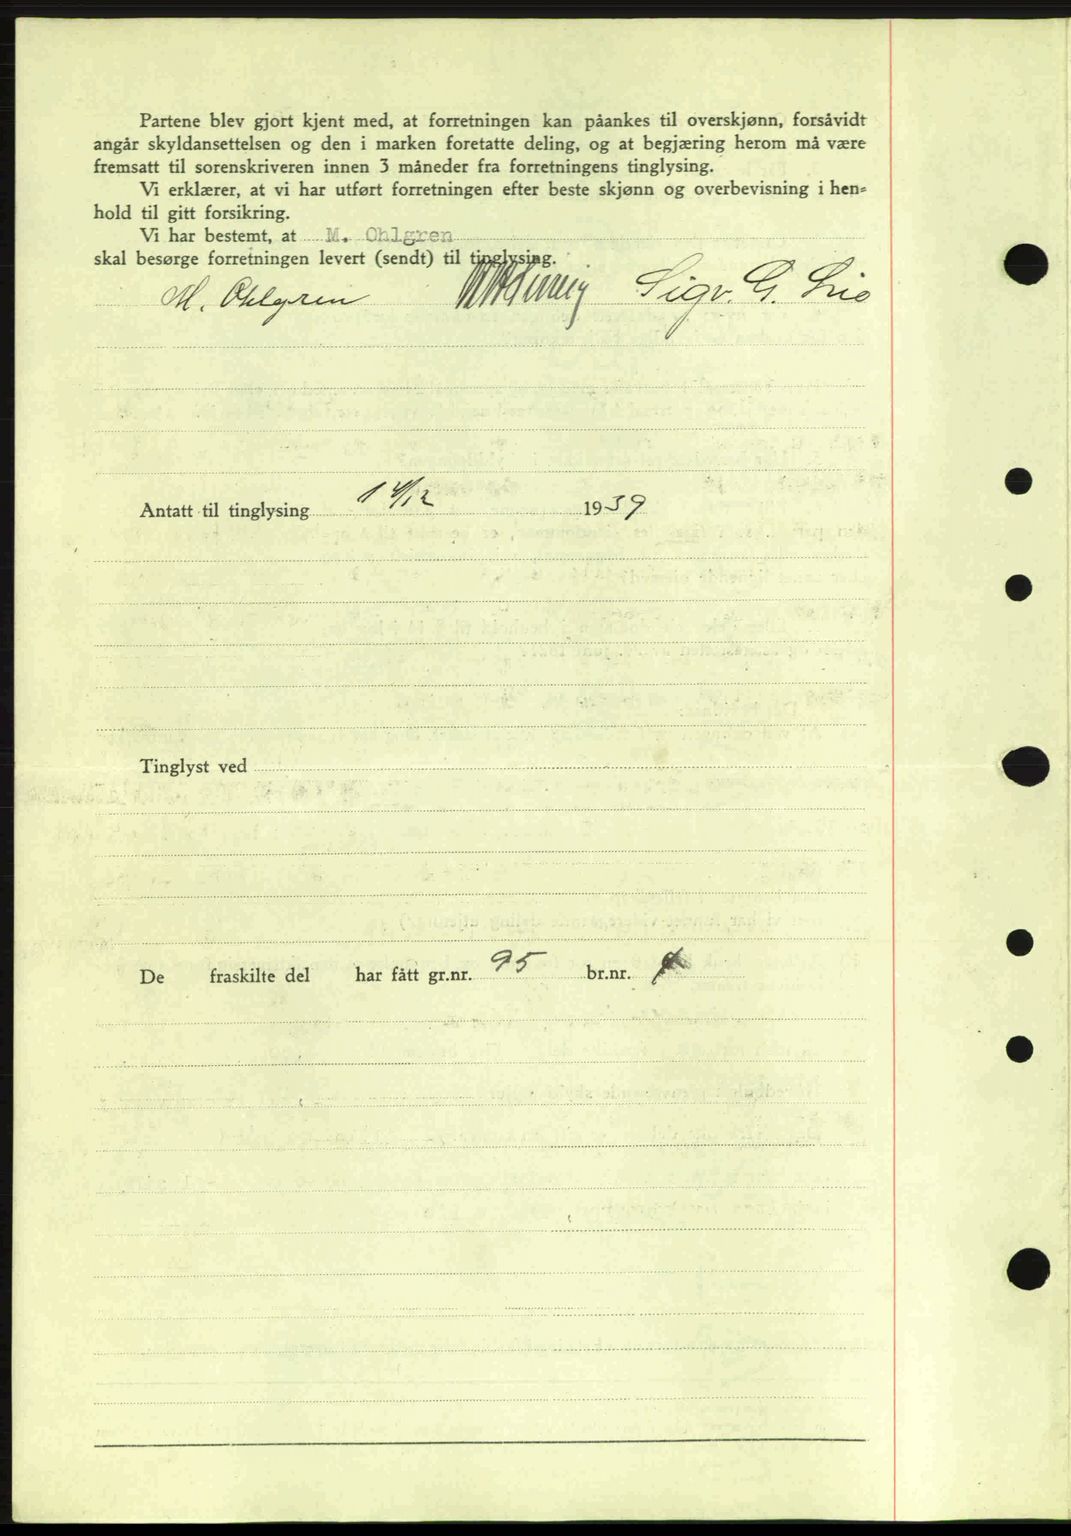 Partene blev gjort kjent med, at forretningen kan påankes til overskjønn, forsåvidt
angår skyldansettelsen og den i marken foretatte deling, og at begjæring herom må være
fremsatt til sorenskriveren innen 3 måneder fra forretningens tinglysing.
Vi erklærer, at vi har utført forretningen efter beste skjønn og overbevisning i hen=
hold til gitt forsikring.
Vi har bestemt, at M. Ohlgren
skal besørge forretningen levert (sendt) til tinglysing.
M. Ohlgren Sigv. G. Lio
Antatt til tinglysing 14/12 1939
Tinglyst ved
De fraskilte del har fått gr.nr. 95 br.nr.